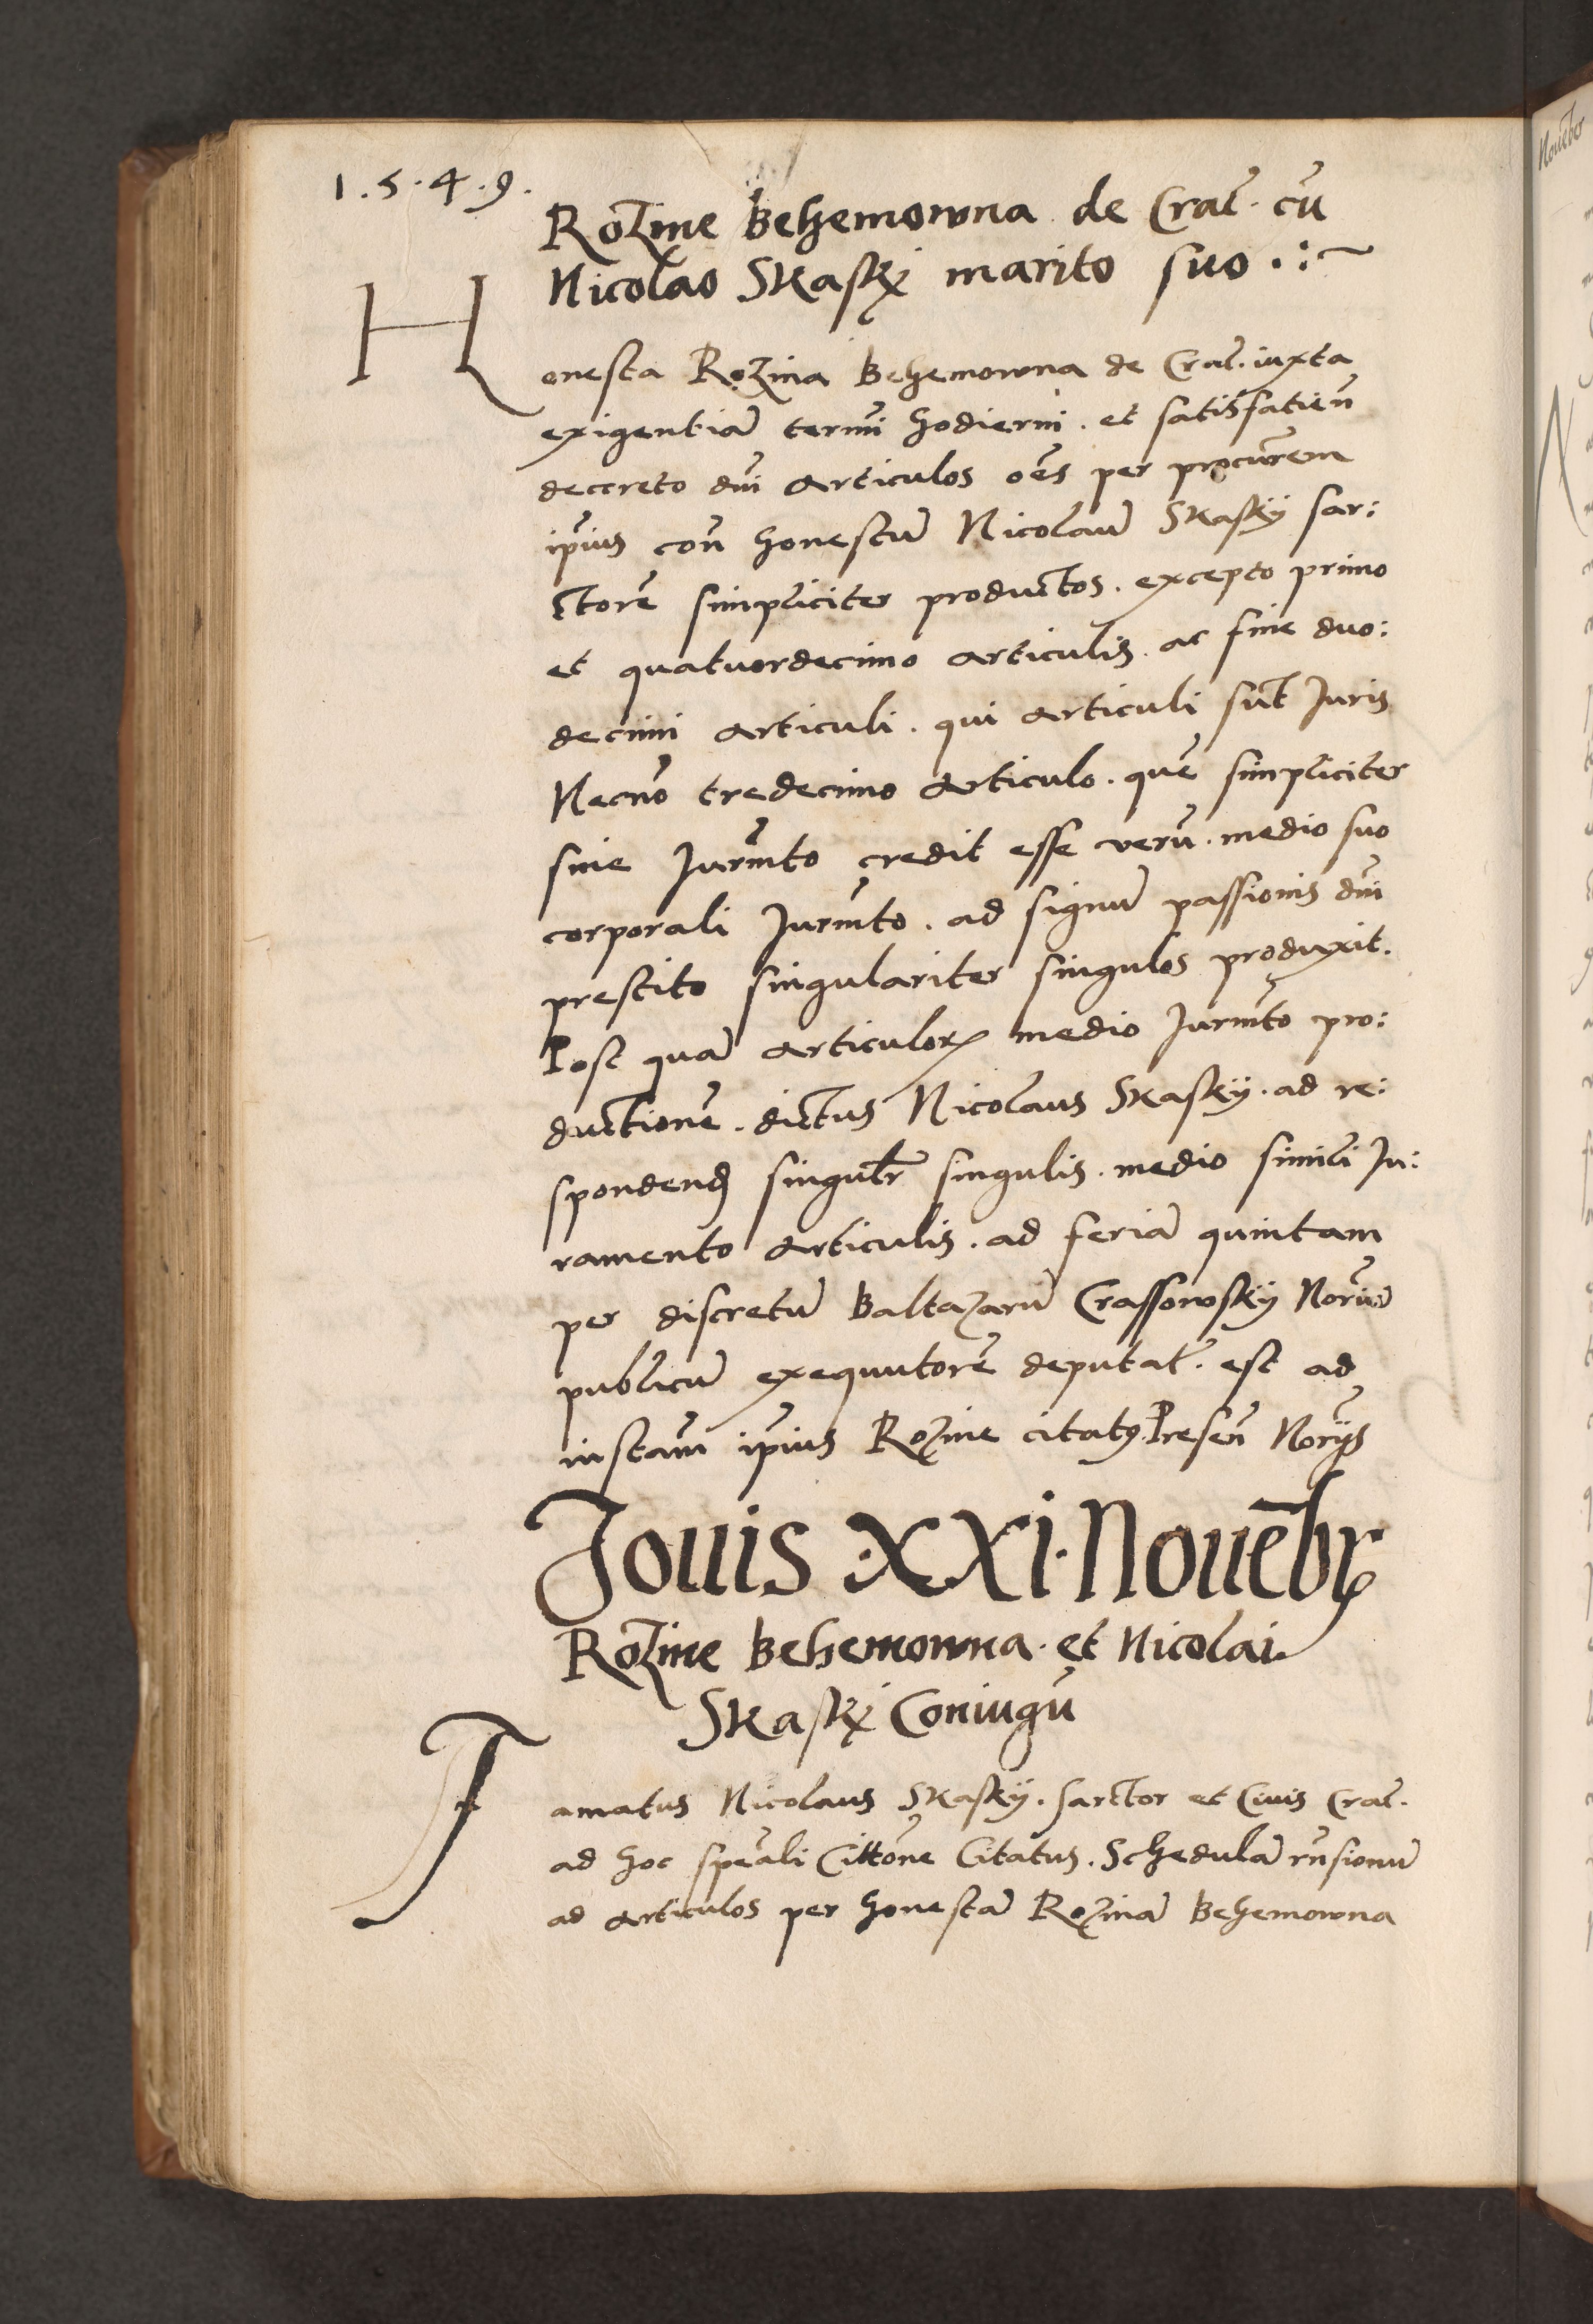 1.5.4.9.
Rozine Behemowna de Crac̃. cũ
Nicolao Skasky marito suo
Honesta Rozina Behemowna de Crac̃. iuxta
exigentiã termĩ hodierni. et satisfatieñ
decreto dñi articulos oẽs per procurẽm
ip̃ius coñ honestũ Nicolaũ Skasky sar:
ctorẽ simpliciter productos. excepto primo
et quatuordecimo articulis. ac fine duo:
decimi articuli. qui articuli sũt Juris
Necnõ tredecimo articulo. quẽ simpliciter
sine Jurm̃to credit esse verũ. medio suo
corporali Jurm̃to. ad signũ passionis dñi
prestito singulariter singulos produxit.
Post quã articulorꝝ medio Jurm̃to pro:
ductionẽ. dictus Nicolaus Skasky. ad re:
spondenđ singulr̃ singulis. medio simili Ju:
ramento articulis. ad feriã quintam
per discretũ Baltazarũ Crassowsky Noriũ
publicũ exequutorẽ deputat̃. est ad
instañm ip̃ius Rozine citatꝰ. Preseñ Norijs
Jouis XXI. Nouẽbr
Rozine Behemowna. et Nicolai
Skasky Coniugũ
Jamatus Nicolaus Skasky. sarctor et Ciuis Crac̃.
ad hoc spẽali Cittõne Citatus. Schedulã rñsionũ
ad articulos per honestã Rozinã Behemowna
Nouẽber